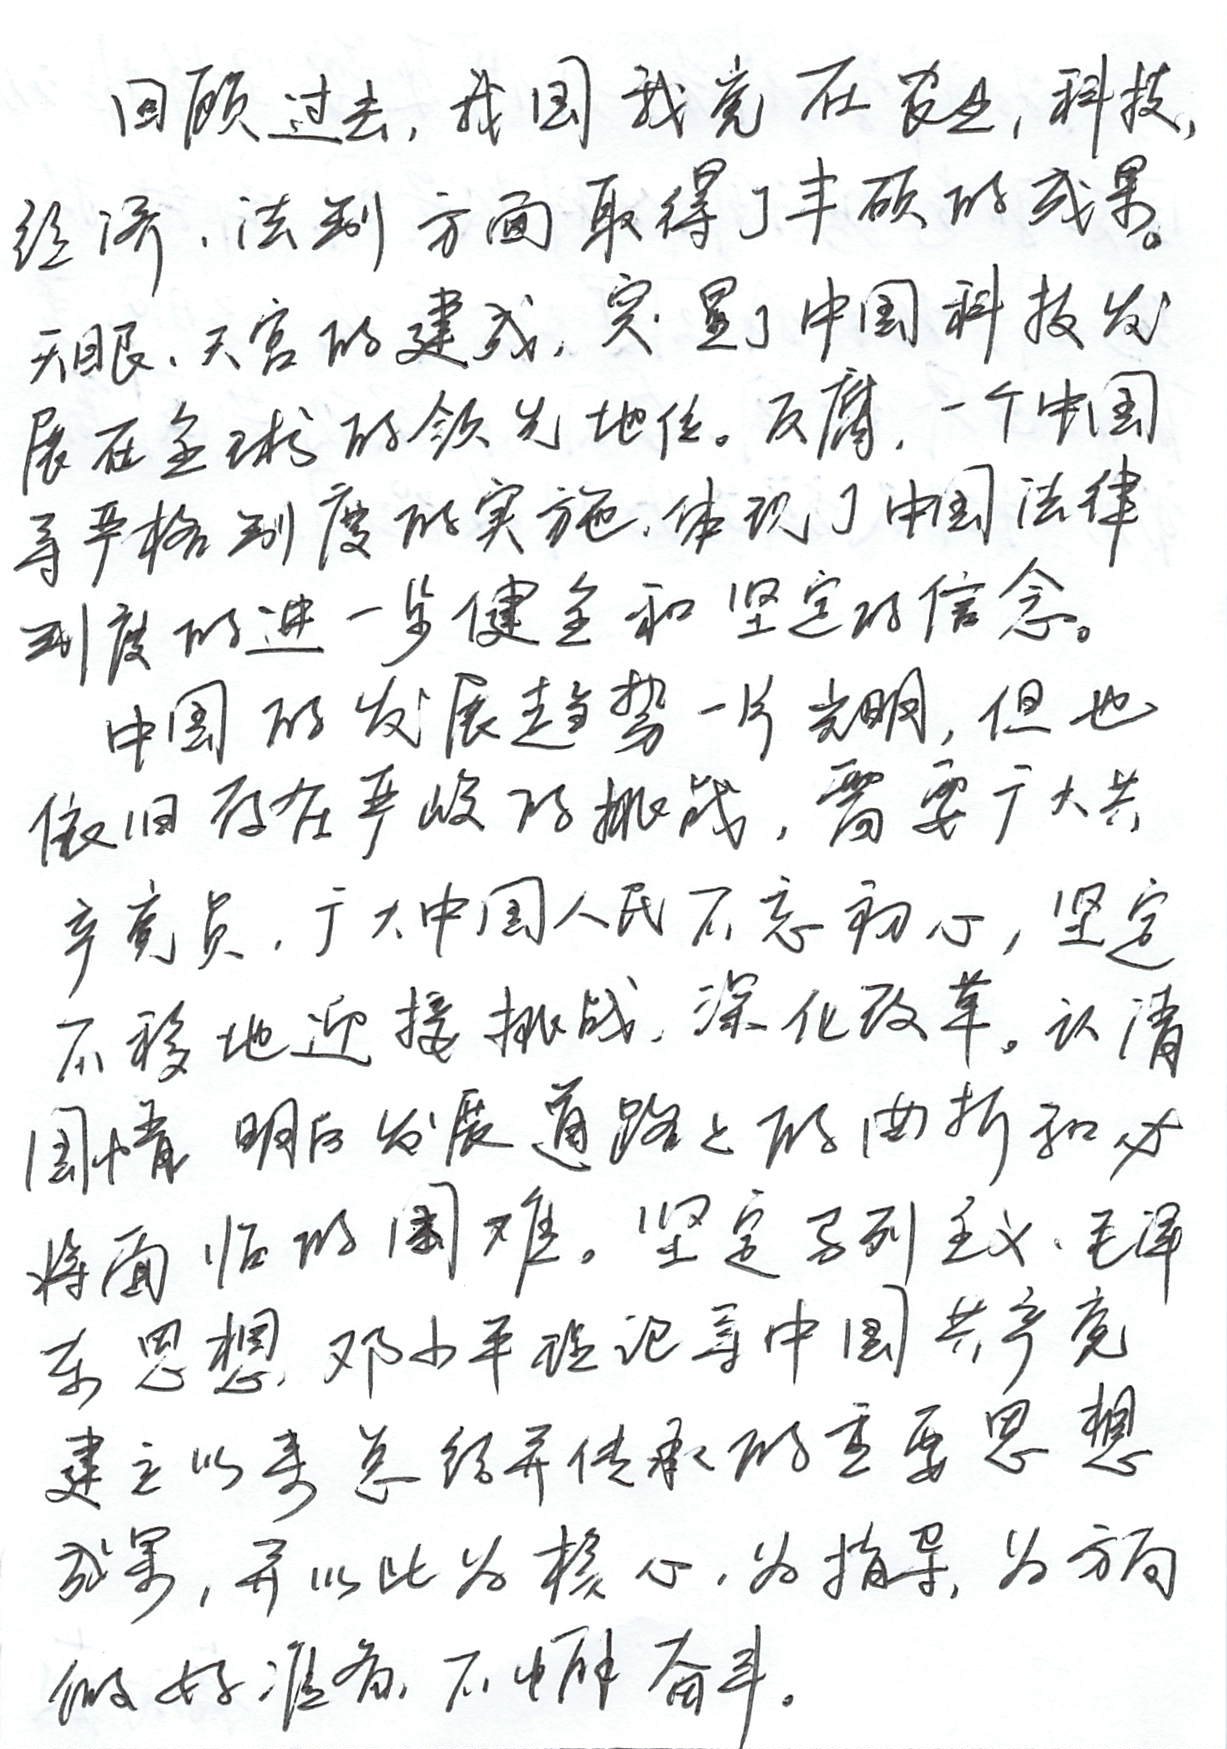 回顾过去，我国我党在农业，科技，
经济、法制方面取得了丰硕的成果。
天眼、天宫的建成，突显了中国科技发
展在全球的领先地位。反腐，一个中国
等严格制度的实施，体现了中国法律
制度的进一步健全和坚定的信念。
中国的发展趋势一片光明，但也
依旧存在严峻的挑战，需要广大共
产党员、广大中国人民不忘初心，坚定
不移地迎接挑战，深化改革。认清
国情 明白发展道路上的曲折和必
将面临的困难。坚定马列主义、毛泽
东思想、邓小平理论等中国共产党
建立以来总结并传承的重要思想
成果，并以此为核心，为指导，为方向
做好准备，不懈奋斗。